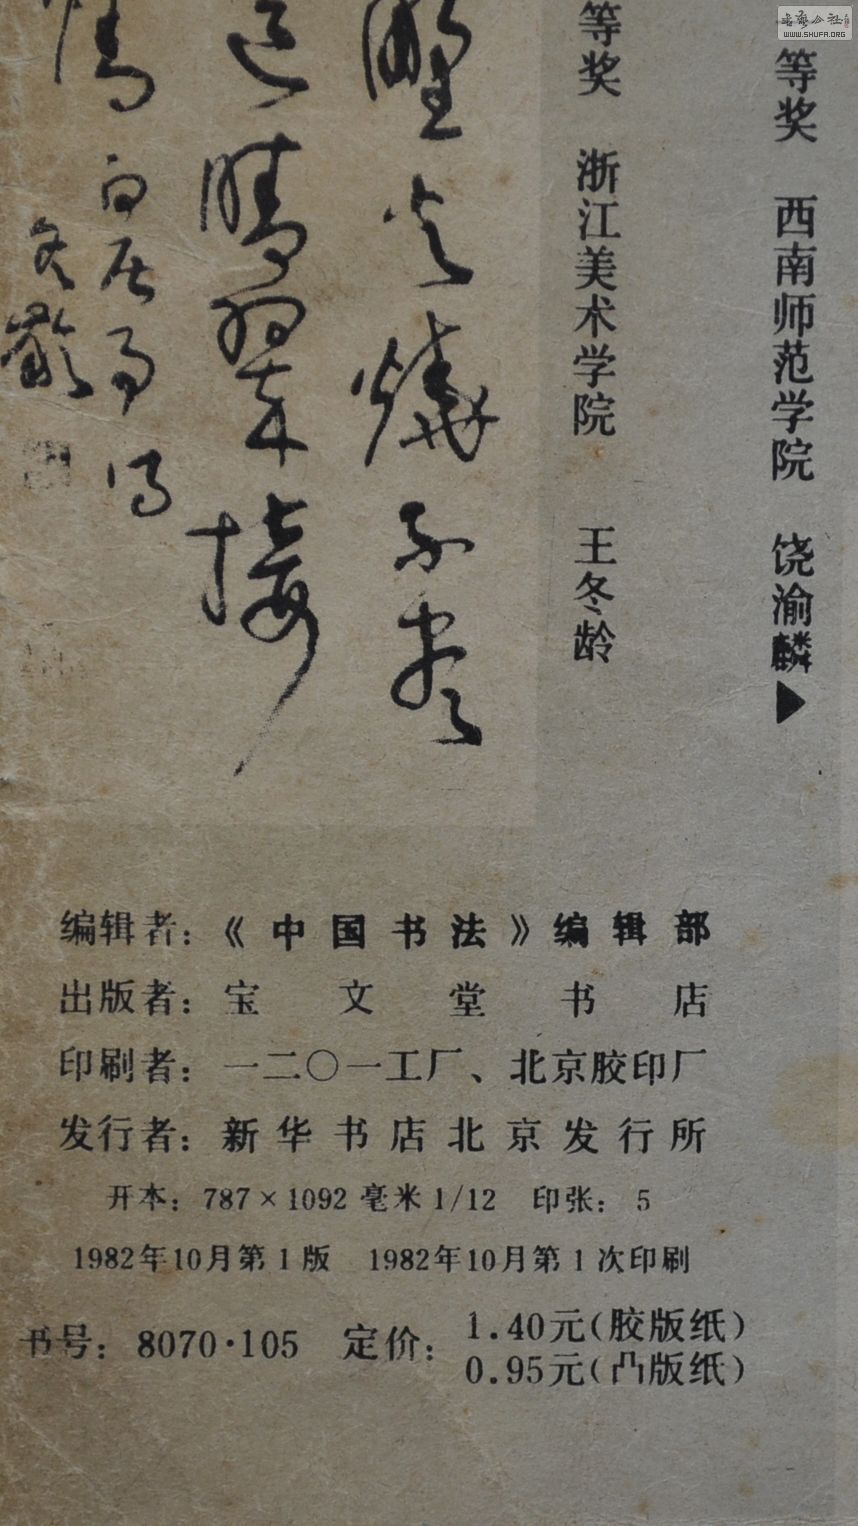 書法公社
WWW.SHUFA.ORG
等奖 西南师范学院 饶渝麟▶
等奖 浙江美术学院 王冬龄
野火燒不盡
遠芳侵古道晴翠接
情
白居易詩
冬齡
编辑者：《中国书法》编辑部
出版者：宝文堂书店
印刷者：一二〇一工厂、北京胶印厂
发行者：新华书店北京发行所
开本：787×1092毫米1/12 印张：5
1982年10月第1版 1982年10月第1次印刷
书号：8070·105 定价：1.40元(胶版纸)
0.95元(凸版纸)